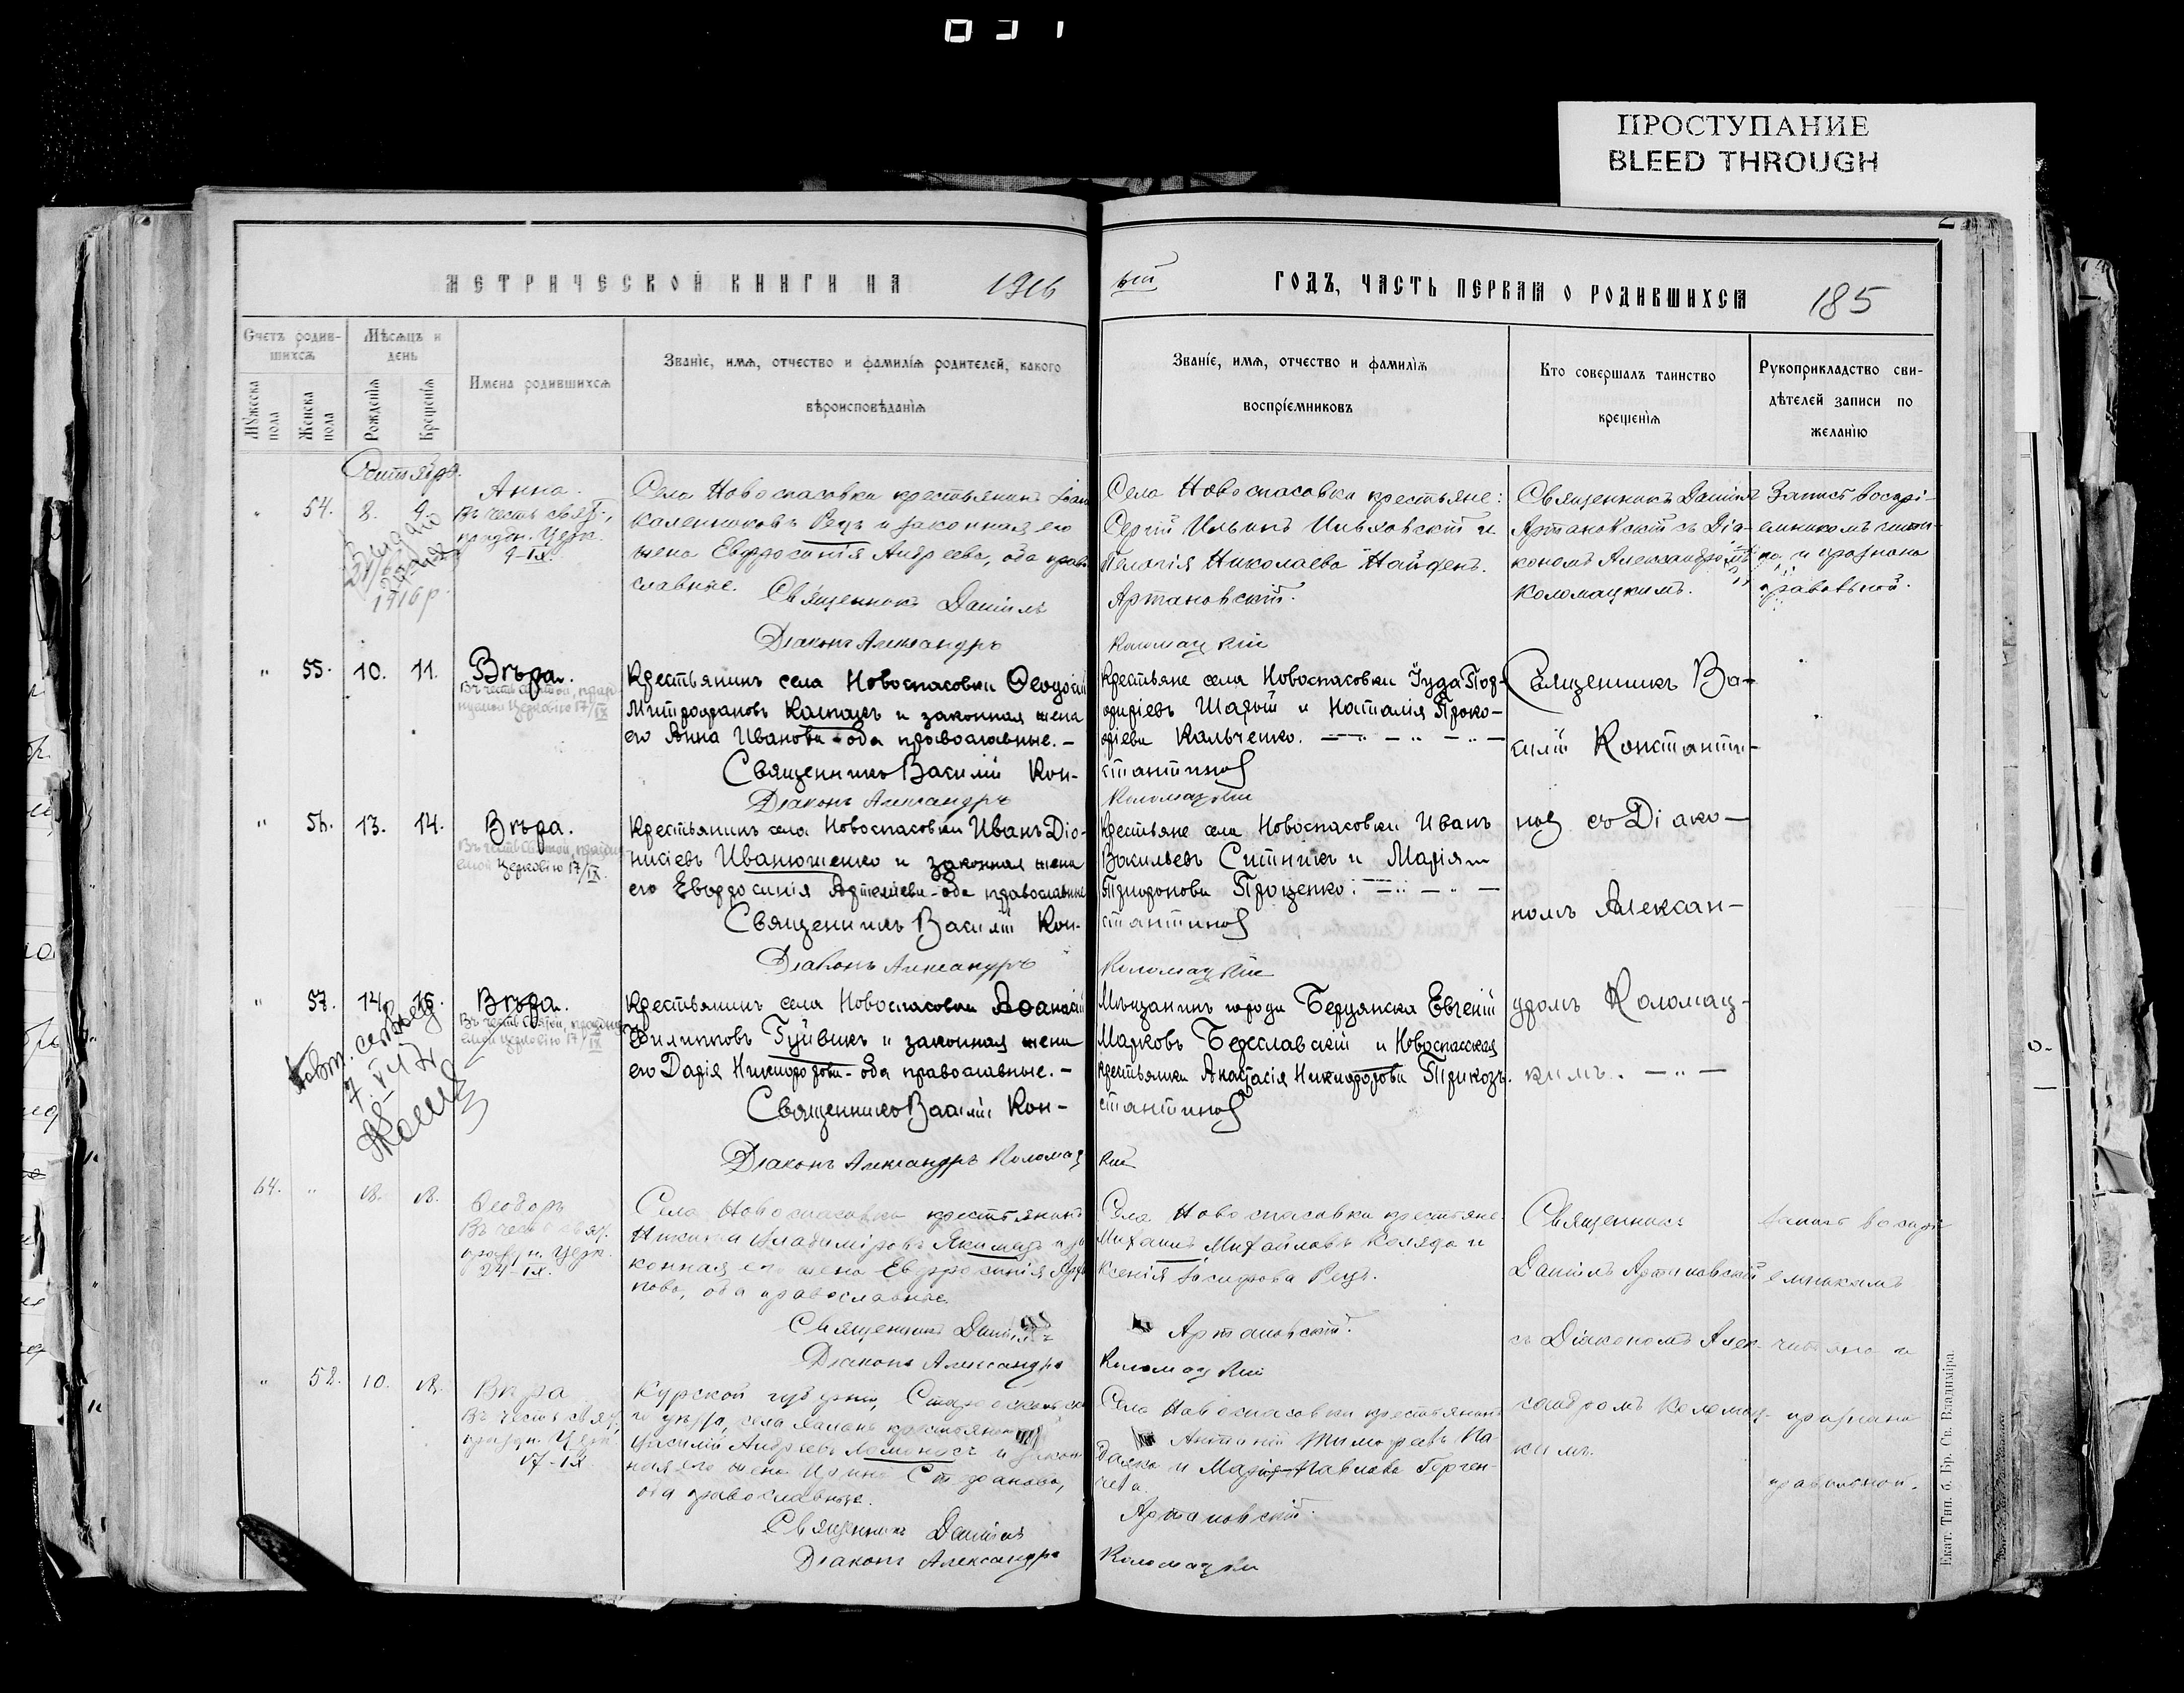 ПРОСТУПАНИЕ
BLEED THROUGH
МЕТРИЧЕСКОЙ КНИГИ НА 1916
ый ГОДЪ, ЧАСТЬ ПЕРВАЯ О РОДИВШИХСЯ 185
Счетъ родив-
шихся
Мужеска пола
Женска пола
Мѣсяцъ и
день
Рожденія
Крещенія
Имена родившихся
Званіе, имя, отчество и фамилія родителей, какого
вѣроисповѣданія
Званіе, имя, отчество и фамилія
воспріемниковъ
Кто совершалъ таинство
крещенія
Рукоприкладство сви-
дѣтелей записи по
желанію
Сентябрь.
" 54. 8. 9.
Анна.
Въ честь свят.,
праздн. Церк.
9-IX.
1916 р.
Села Новоспасовки крестьянинъ
Каленниковъ Рецъ и законная его
жена Евфросинія Андреева, оба право
славные.
Священникъ Даніилъ
Діаконъ Александръ
Села Новоспасовки крестьяне:
Сергій Ильинъ Ильяовскій и
Пелагія Николаева Найденъ.
Артановскій.
Коломацкій
Священникъ Даніилъ
Артановскій съ Діа-
кономъ Александромъ
Коломацкимъ.
Запись воспрі-
емникомъ чита-
на и признана
правильной.
" 55. 10. 11.
Вѣра.
Въ честь святой, празд-
нуемой Церковію 17/IX
Крестьянинъ села Новоспасовки Ѳеодосій
Митрофановъ Калпакъ и законная жена
его Анна Иванова - оба православные. —
Священникъ Василій Кон-
Діаконъ Александръ
Крестьяне села Новоспасовки Іуда Пор-
фиріевъ Шарый и Наталія Проко-
фіева Кальченко.
стантиновъ
Коломацкій
Священникъ Ва-
силій Константи-
новъ съ Діако-
номъ Алексан-
дромъ Коломац-
кимъ.
" 56. 13. 14.
Вѣра.
Въ честь святой, праздну
емой Церковію 17/IX.
Крестьянинъ села Новоспасовки Иванъ Діо-
нисіевъ Иванюшенко и законная жена
его Евфросинія Артемьева - оба православные
Священникъ Василій Кон-
Діаконъ Александръ
Крестьяне села Новоспасовки Иванъ
Васильевъ Ситникъ и Марія
Трифонова Проценко.
стантиновъ
Коломацкій
" 57. 14. 15.
Вѣра.
Въ честь святой, праздну
емой Церковію 17/IX
Крестьянинъ села Новоспасовки Аѳанасій
Филипповъ Гуйвикъ и законная жена
его Дарія Никифорова - оба православные. —
Священникъ Василій Кон-
Діаконъ Александръ Коломац
Мѣщанинъ города Бердянска Евгеній
Марковъ Бреславскій и Новоспасская
крестьянка Анастасія Никифорова Прикозъ.
стантиновъ
кій
64. " 18. 18.
Ѳеодоръ
Въ честь свят.
праздн. Церк.
24-IX.
Села Новоспасовки крестьянинъ
Никита Владиміровъ Якимецъ и за
конная его жена Евфросинія
пова, оба православные.
Священникъ Даніилъ
Діаконъ Александръ
Села Новоспасовки крестьяне
Михаилъ Михайловъ Коляда и
Ксенія Рецъ.
Артановскій.
Коломацкій
Священникъ
Даніилъ Артановскій
съ Діакономъ Алек-
сандромъ Коломац-
кимъ.
Запись воспрі-
емникомъ
читана и
признана
правильной.
" 58. 10. 18.
Вѣра
Въ честь свят.,
праздн. Церк.
17-IX.
Курской губерніи, Старооскольска
го уѣзда, села крестьянинъ
Василій Андреевъ Ломоносъ и закон
ная его жена Ирина Стефанова,
оба православные.
Священникъ Даніилъ
Діаконъ Александръ
Села Новоспасовки крестьянинъ
Антоній Тимофеевъ Па-
далка и Марія Павлова
Артановскій.
Коломацкій
Екат. Тип. б. Бр. Св. Владиміра.